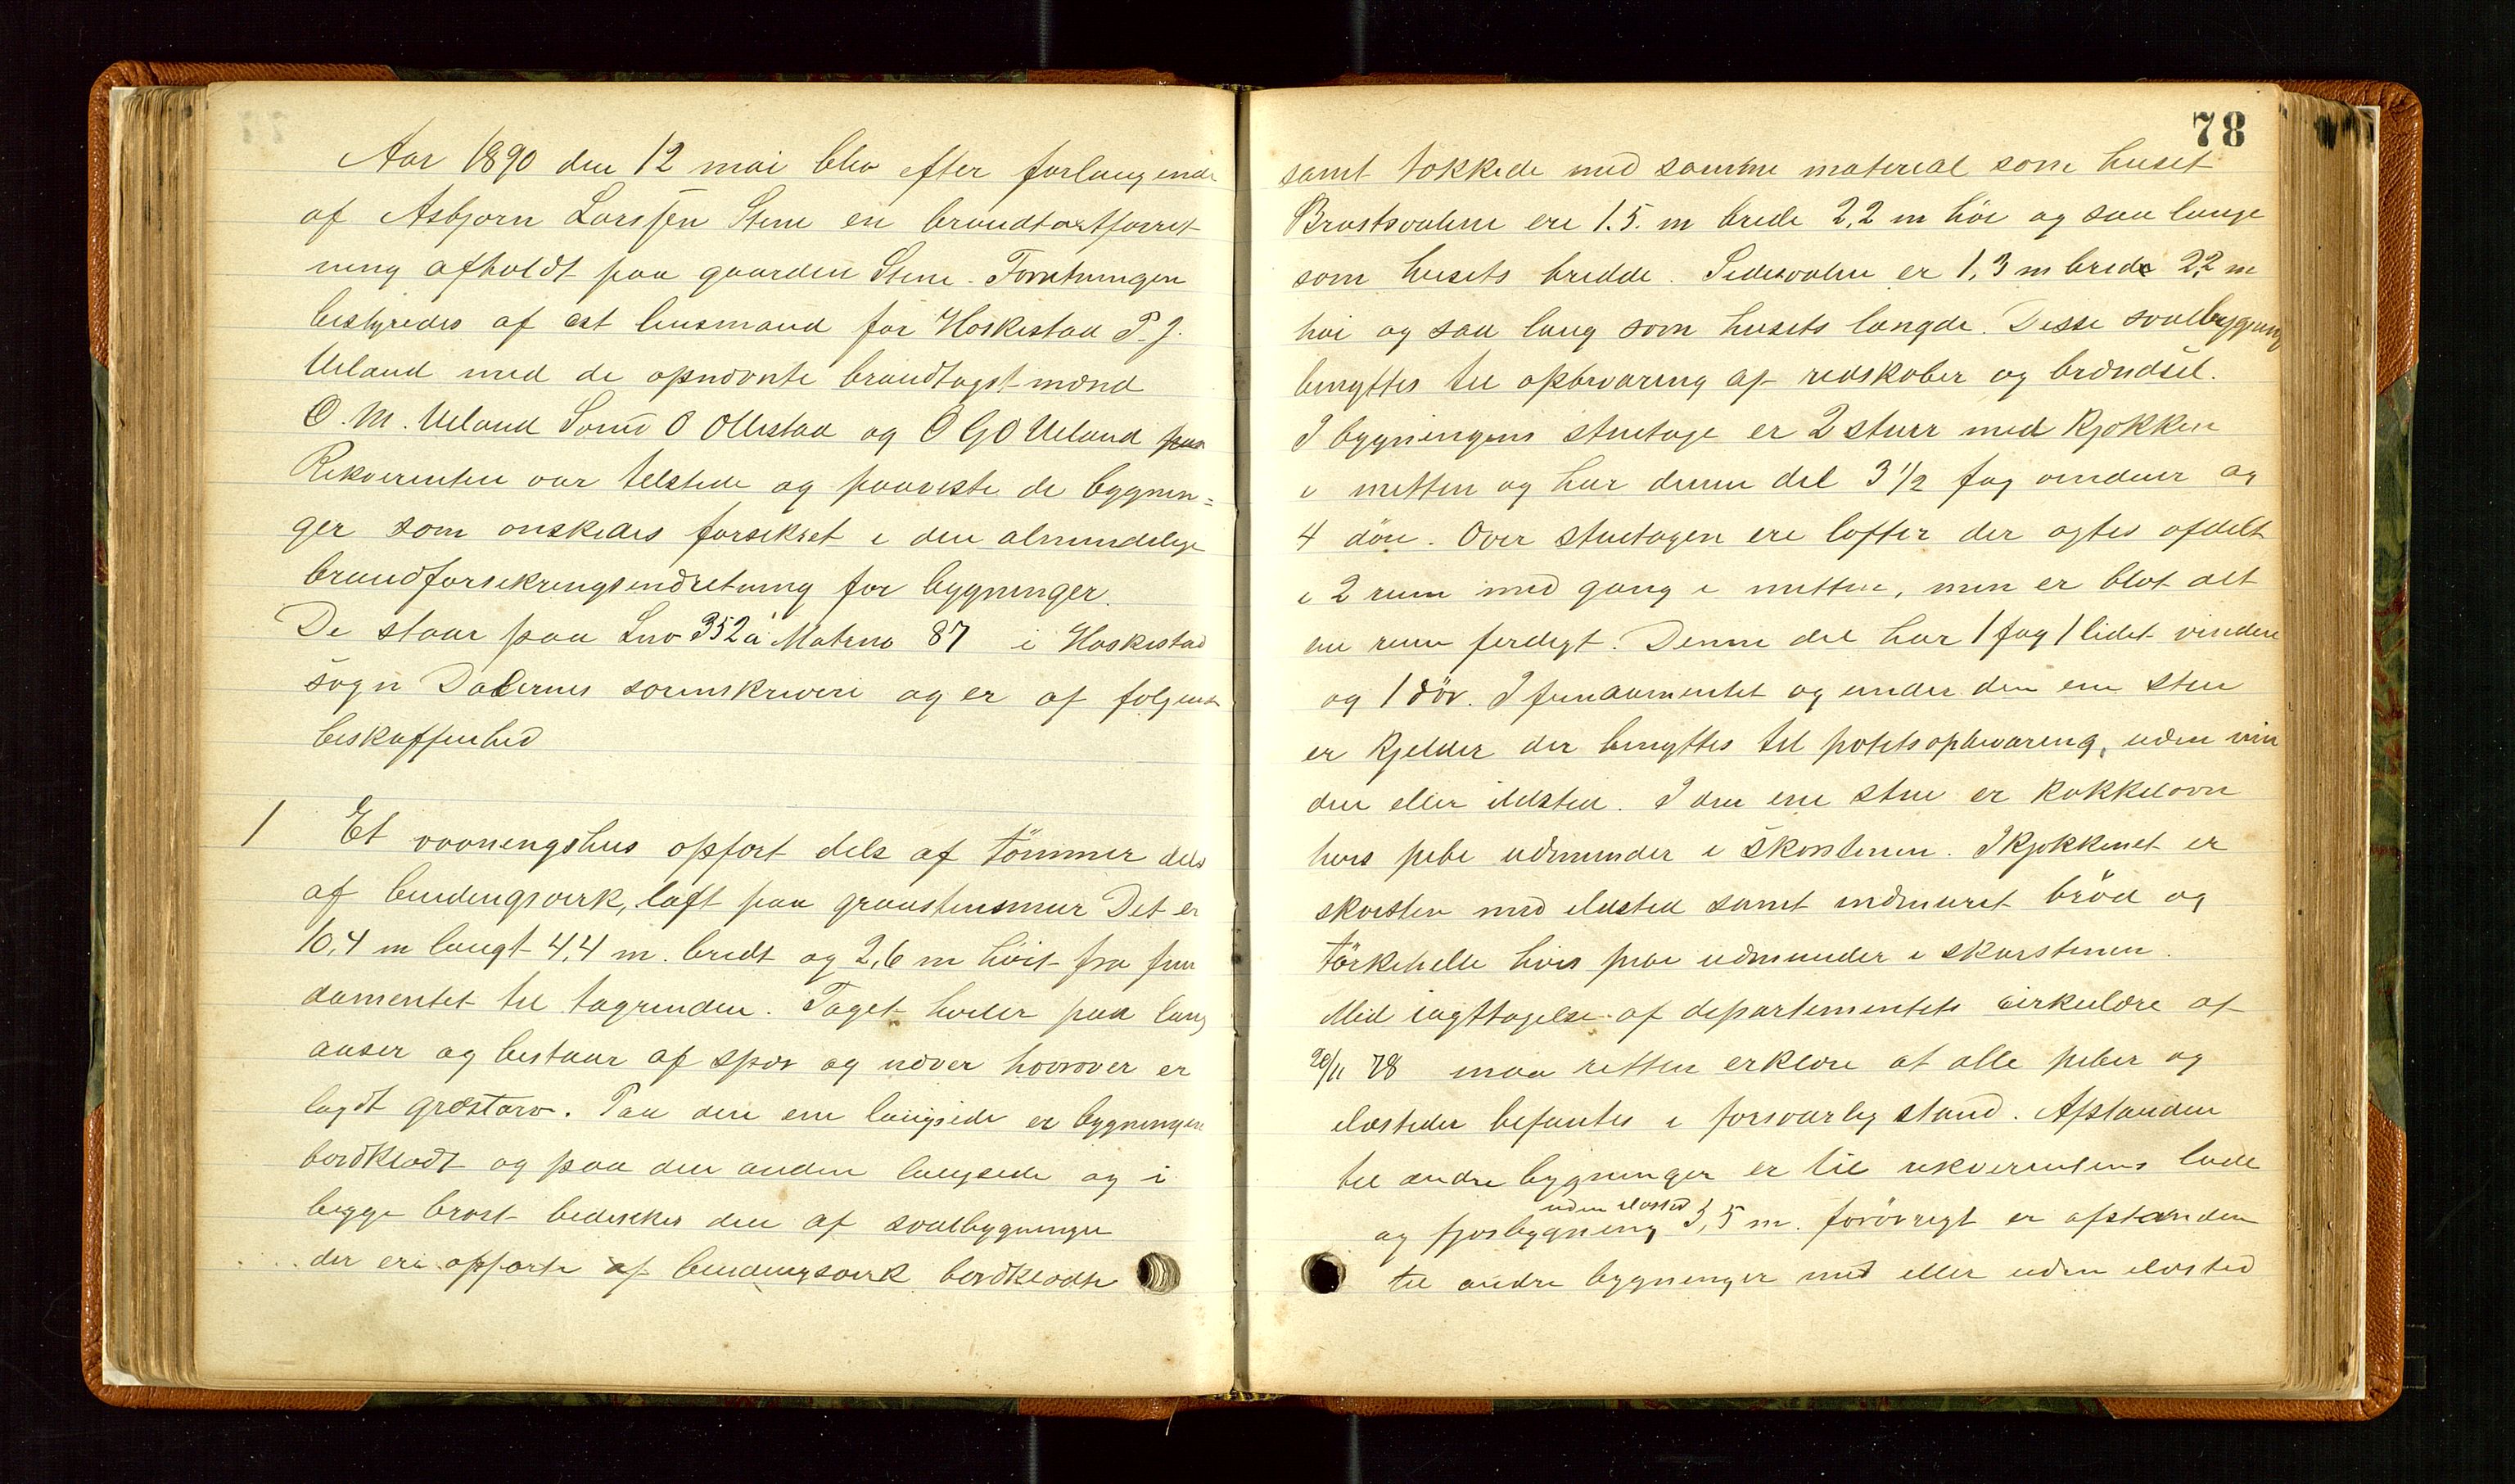 Aar 1890 den 12 mai blev efter forlangende
af Asbjørn Larssen Stene en brandtaxtforret
ning afholdt paa gaarden Stene. Forretningen
bestyredes af cst lensmand for Heskestad P. J.
Ueland med de opnævnte brandtagstmænd
O. M. Ueland O Ollestad og O G O Ueland
Rekvirenten var tilstede og paaviste de bygnin=
ger som onskedes forsikret i den almindelige
brandforsikringsindretning for bygninger.
De staar paa Lno 352 a Matrno 87 i Heskestad
sogn Dalernes sorenskriveri og er af følgende
beskaffenhed
1 Et vaaningshus opført dels af tömmer dels
af bindingsverk, lagt paa graastensmur Det er
10,4 m langt 4,4 m. bredt og 2,6 m höit fra fun
damentet til tagrenden. Taget hviler paa lang
aaser og bestaar af spær og næver hvorover er
lagt græstorv. Paa den ene langside er bygningen
bordklædt og paa den anden langside og i
begge brøst bedekkes den af svalbygninger
der ere opførte af bindingsverk bordklædte
78
samt tækkede med samme material som huset
Brøstsvalene ere 1.5. m brede 2,2 m höi og saa lange
som husets bredde. Sidesvalen er 1,3 m bred 2,2 m
høi og saa lang som husets længde. Disse svalbygning
benyttes til opbevaring af redskaber og brændsel.
I bygningens stuetage er 2 stuer med kjøkken
i mitten og har denne del 3 1/2 fag vinduer og
4 döre. Over stuetagen ere lofter der agtes afdelt
i 2 rum med gang i mitten, men er blot det
ene rum ferdigt. Denne del har 1 fag 1 lidet vindue
og 1 dör. I fundamentet og under den ene stue
er kjelder der benyttes til potetsopbevaring, uden vin
due eller ildsted. I den ene stue er kakkelovn
hvis pibe udmunder i skorstenen. I kjøkkenet er
skorsten med ildsted samt indmuret bröd og
törkehelle hvis pibe udmunder i skorstenen.
Med iagttagelse af departementets cirkulære af
20/11 78 maa retten erklære at alle piber og
ildsteder befantes i forsvarlig stand. Afstanden
til andre bygninger er til rekvirentens lade
uden ildsted
og fjøsbygning 3,5 m. forövrigt er afstanden
til andre bygninger med eller uden ildsted